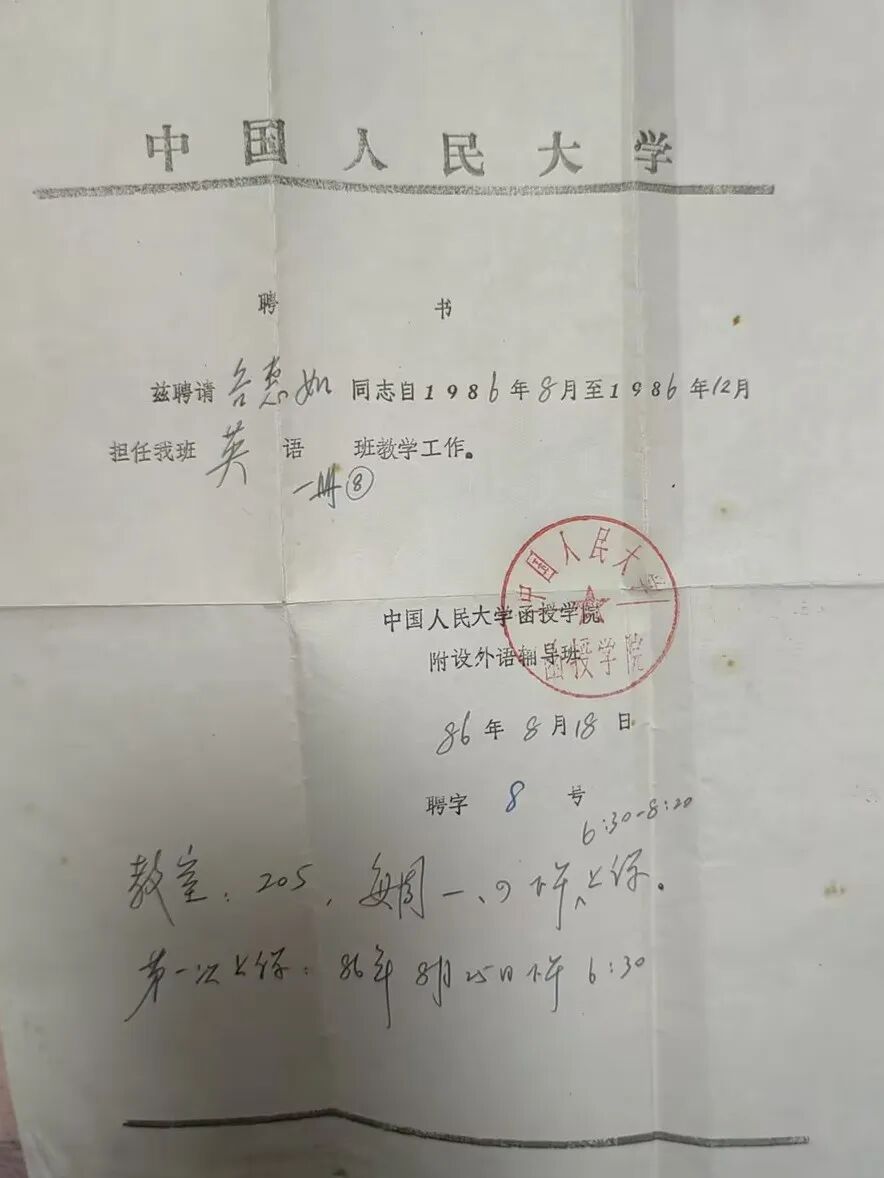 中国人民大学
聘书
兹聘请谷惠如同志自1986年8月至1986年12月
担任我班英语班教学工作。
一册⑧
中国人民大学
函授学院
中国人民大学函授学院
附设外语辅导班
86年8月18日
聘字8号
6:30-8:20
教室：205，每周一、四下午上课。
第一次上课：86年8月25日下午6:30